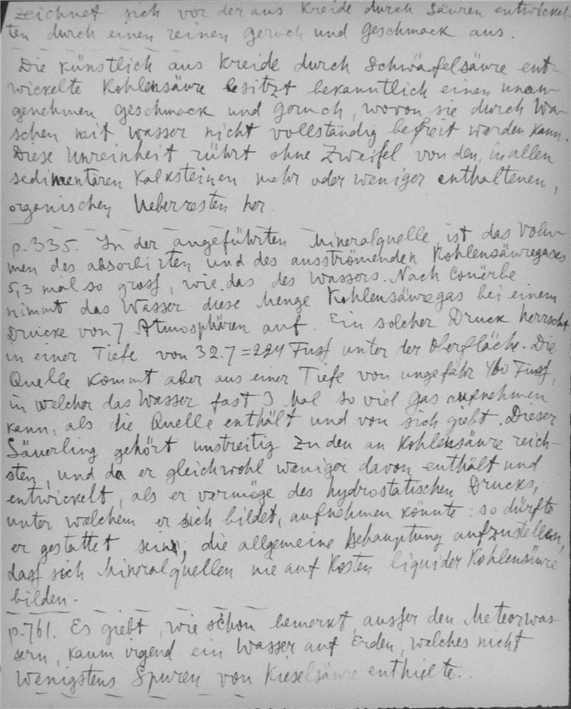 zeichnet sich vor der aus Kreide durch Säuren entwickel-
ten durch einen reinen Geruch und Geschmack aus.
Die künstlich aus Kreide durch Schwäfelsäure ent-
wickelte Kohlensäure besitzt bekanntlich einen unan-
genehmen Geschmack und Goruch, wovon sie durch Wa-
schen mit Wasser nicht vollständig befreit worden kann.
Diese Unreinheit rührt ohne Zweifel von den, in allen
sedimentären Kalksteinen mehr oder weniger enthaltenen,
organischen Ueberresten her.
p.335. In der angeführten Mineralquelle ist das Volu-
men des absorbirten und des ausströmenden Kohlensäuregases
5,3 mal so gross, wie das des Wassers. Nach Couërbe
nimmt das Wasser diese Menge Kohlensäuregas bei einem
Drucke von 7 Atmosphären auf. Ein solcher Druck herrscht
in einer Tiefe von 32.7=224 Fuss unter der Oberfläche. Die
Quelle kommt aber aus einer Tiefe von ungefähr Fuss,
in welcher das Wasser fast 3 Mal so viel Gas aufnehmen
kann, als die Quelle enthält und von sich giebt. Dieser
Säuerling gehört unstreitig zu den an Kohlensäure reich-
sten, und da er gleichwohl weniger davon enthält und
entwickelt, als er vermöge des hydrostatischen Drucks,
unter welchem er sich bildet, aufnehmen könnte: so dürfte
er gestattet sein, die allgemeine Behauptung aufzustellen,
dass sich Mineralquellen nie auf Kosten liquider Kohlensäure
bilden.
p.761. Es giebt, wie schon bemerkt, ausser den Meteorwas-
sern, kaum irgend ein Wasser auf Erden, welches nicht
wenigstens Spuren von Kieselsäure enthielte.